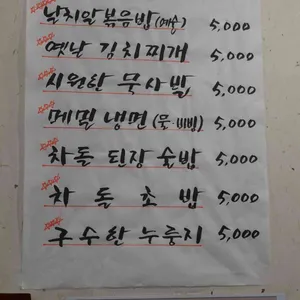 날치알볶음밥(매콤) 5,000
옛날 김치찌개 5,000
시원한 묵사발 5,000
메밀 냉면(물·비빔) 5,000
차돌 된장 술밥 5,000
차돌초밥 5,000
구수한 누룽지 5,000